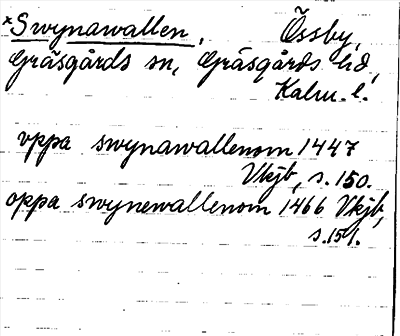 *Swynawallen, Össby,
Gräsgårds sn, Gräsgårds hd,
Kalm. l.
vppa swynawallenom 1447
Vkjb, s. 150.
oppa swynewallenom 1466 Vkjb,
s. 151.